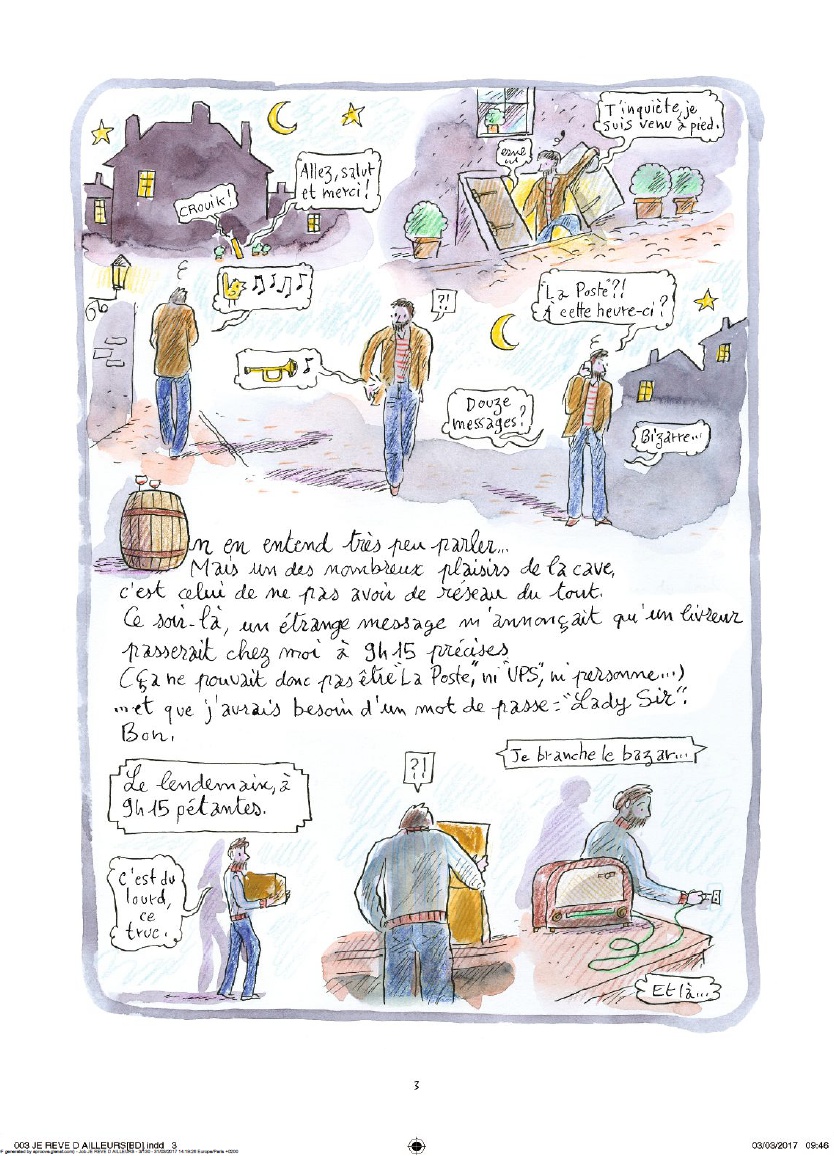 Allez, salut
et merci!
CROUIK!
T'inquiète, je
suis venu à pied.
"La Poste"?!
À cette heure-ci?
?!
Douze
messages?
Bizarre...
n en entend très peu parler...
Mais un des nombreux plaisirs de la cave,
c'est celui de ne pas avoir de réseau du tout.
Ce soir-là, un étrange message m'annonçait qu'un livreur
passerait chez moi à 9h15 précises
(Ça ne pouvait donc pas être "La Poste," ni "UPS", ni personne...)
...et que j'aurais besoin d'un mot de passe = "Lady Sir".
Bon.
Le lendemain, à
9h15 pétantes.
C'est du
lourd,
ce
truc.
?!
Je branche le bazar...
Et là...
3
003 JE REVE D AILLEURS[BD].indd 3
03/03/2017 09:46